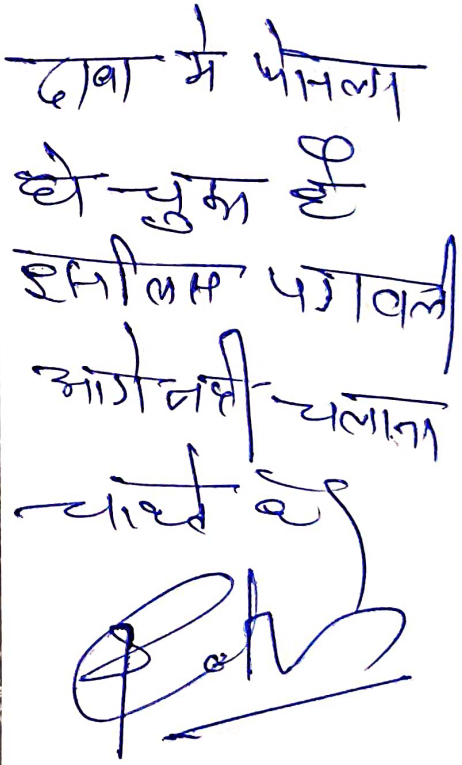 दावा मे फेसला
हो चुका है
इसलिए पत्रावली
आगे नही चलाना
चाहते है